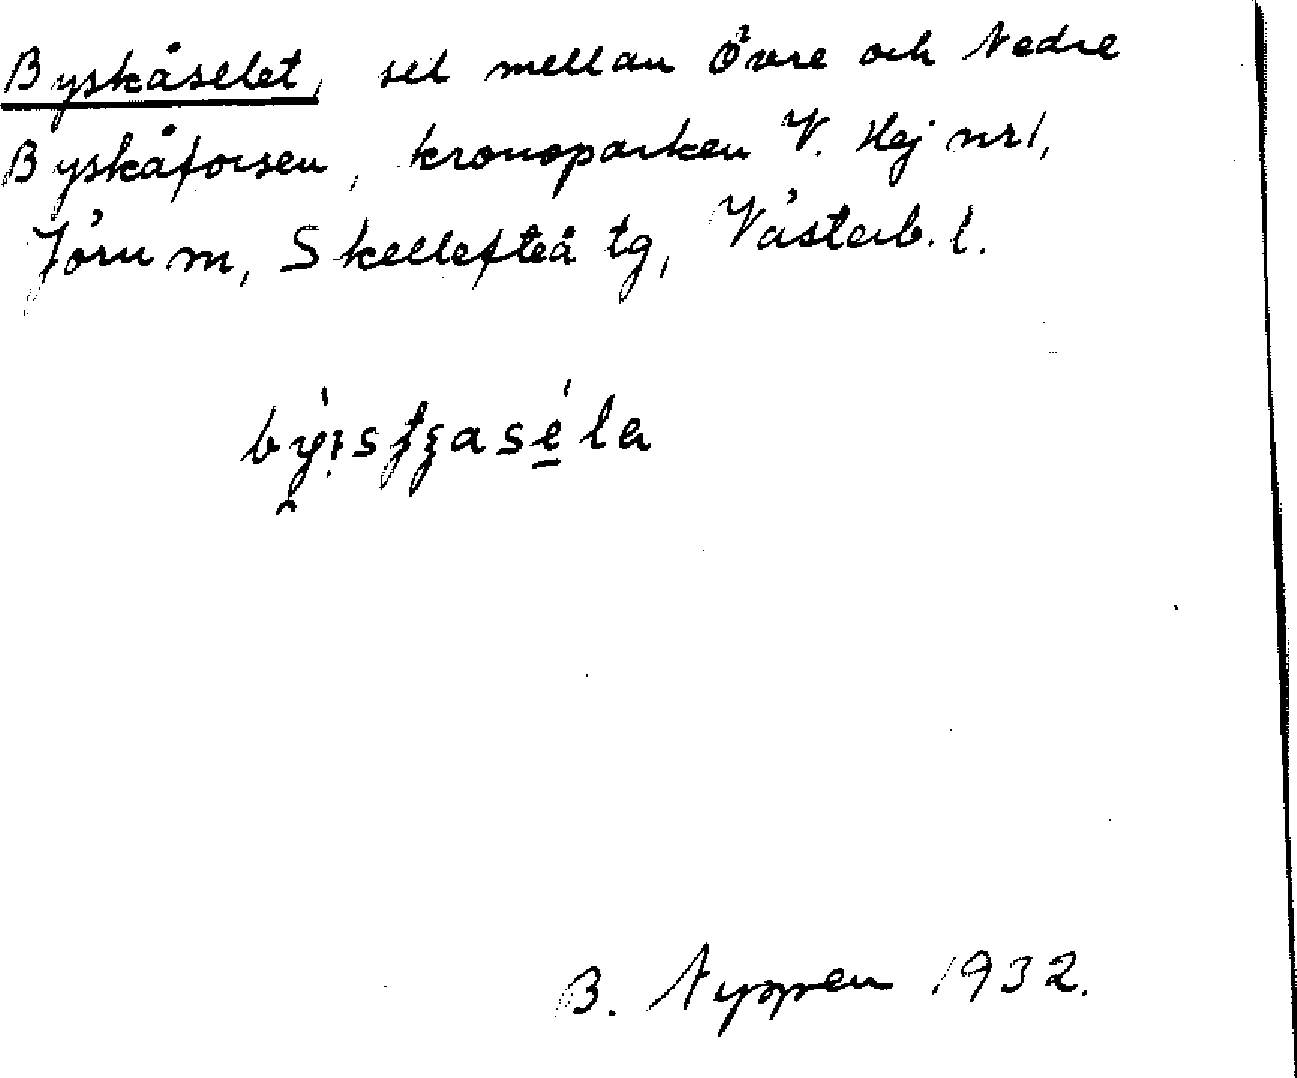 Byskåselet, sel mellan Övre och Nedre
Byskåforsen, kronoparken V. Hej nr 1,
Jörn m, Skellefteå tg, Västerb. l.
B. Nyppen 1932.